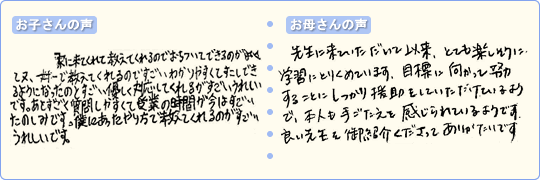 お子さんの声
家に来てくれて教えてくれるのでおちついてできるのがよく
て又、一対一で教えてくれるのですごいわかりやすくてすこしでき
るようになったのとすごい優しく対応してくれるがすごいうれしい
です。あとすごく質問しやすくて授業の時間が今はすごい
たのしみです。僕にあったやり方で教えてくれるのがすごい
うれしいです。
お母さんの声
先生に来ていただいて以来、とても楽しそうに
学習にとりくめています。目標に向かって努力
することにしっかり援助をしていただけているよう
で、本人も手ごたえを感じられているようです。
良い先生を御紹介くださって ありがたいです